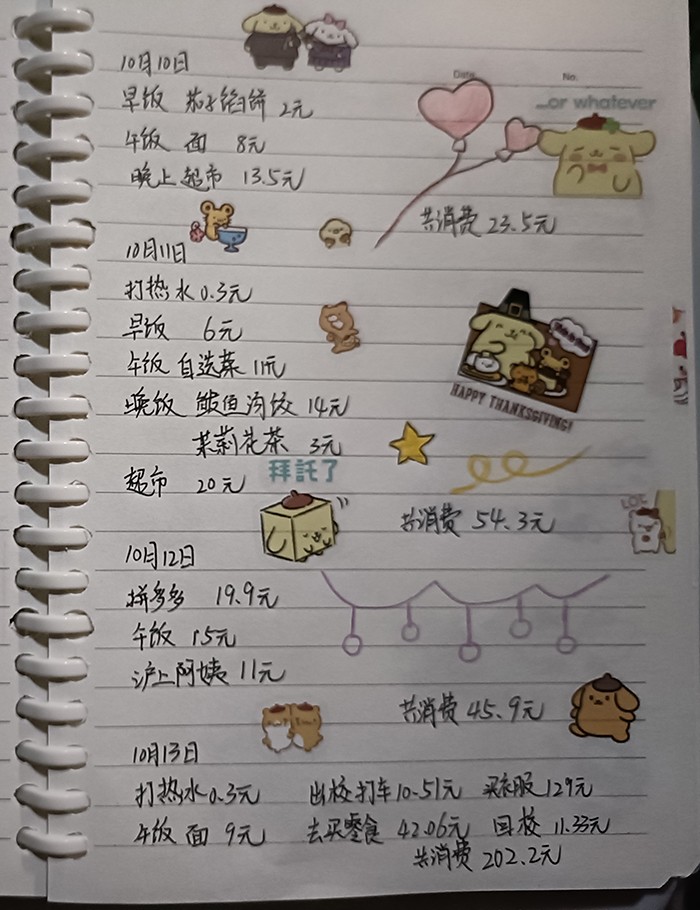 Date.
No.
...or whatever
10月10日
早饭 茄子馅饼 2元
午饭 面 8元
晚上超市 13.5元
共消费 23.5元
10月11日
打热水0.3元
早饭 6元
午饭 自选菜 11元
晚饭 鲅鱼肉饺 14元
茉莉花茶 3元
HAPPY THANKSGIVING!
超市 20元
拜託了
LOL
共消费 54.3元
10月12日
拼多多 19.9元
午饭 15元
沪上阿姨 11元
共消费 45.9元
10月13日
打热水0.3元 出校打车10.51元 买衣服129元
午饭 面 9元 去买零食 42.06元 回校 11.33元
共消费 202.2元